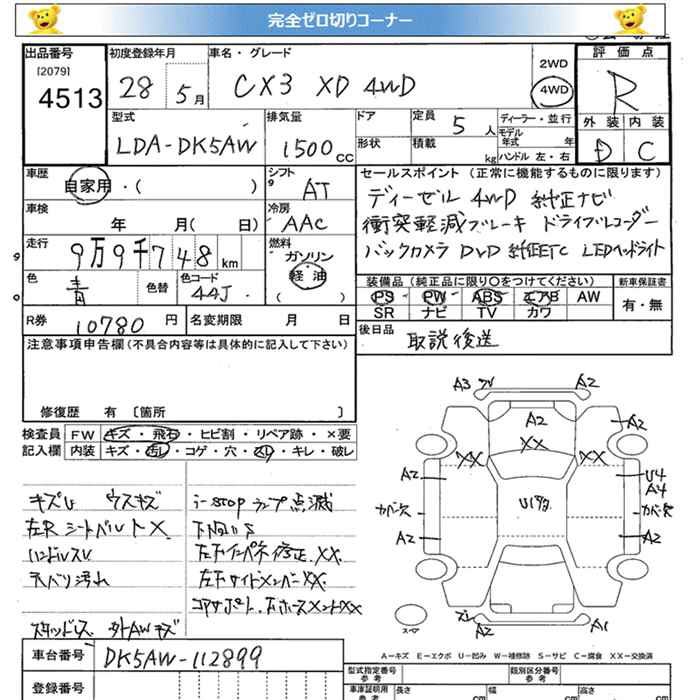 完全ゼロ切りコーナー
出品番号
[2079]
4513
初度登録年月
28 5月
車名・グレード
CX3 XD 4WD
2WD
4WD
評価点
R
外装 内装
D C
型式
LDA-DK5AW
排気量
1500cc
ドア
形状
定員 5人
積載 kg
ディーラー・並行
モデル年式 年
ハンドル 左・右
車歴
自家用・( )
シフト
AT
セールスポイント (正常に機能するものに限ります)
ディーゼル 4WD 純正ナビ
衝突軽減ブレーキ ドライブレコーダー
バックカメラ DVD 純正ETC LEDヘッドライト
車検
年 月( 日)
冷房
AAC
走行
9万9千748km
燃料
ガソリン
軽油
( )
色
青
色替
色コード
44J
装備品 (純正品に限り○をつけてください)
新車保証書
PS PW ABS エアB AW
SR ナビ TV カワ
有・無
R券 10780円
名変期限 月 日
後日品 取説後送
注意事項申告欄(不具合内容等は具体的に記入して下さい)
修復歴 有 [箇所 ]
検査員記入欄
FW キズ・飛石・ヒビ割・リペア跡・×要
内装 キズ・汚レ・コゲ・穴・スレ・キレ・破レ
キズU ウスキズ
左R シートベルト×
ハンドルスレ
天バリ汚れ
スタッドレス 外AWキズ
i-stop ランプ点滅
左Fインパネ修正 XX
左Fサイドメンバー XX
コアサポート
A3
A2
A2
XX
XX
XX
A2
A2
U4
A4
カバー欠
カバー欠
A2
A2
A2
A1
スペア
A-キズ E-エクボ U-凹み W-補修跡 S-サビ C-腐食 XX-交換済
車台番号 DK5AW-112899
登録番号
型式指定番号 参考
類別区分番号 参考
車庫証明用 参考
長さ cm
幅 cm
高さ cm